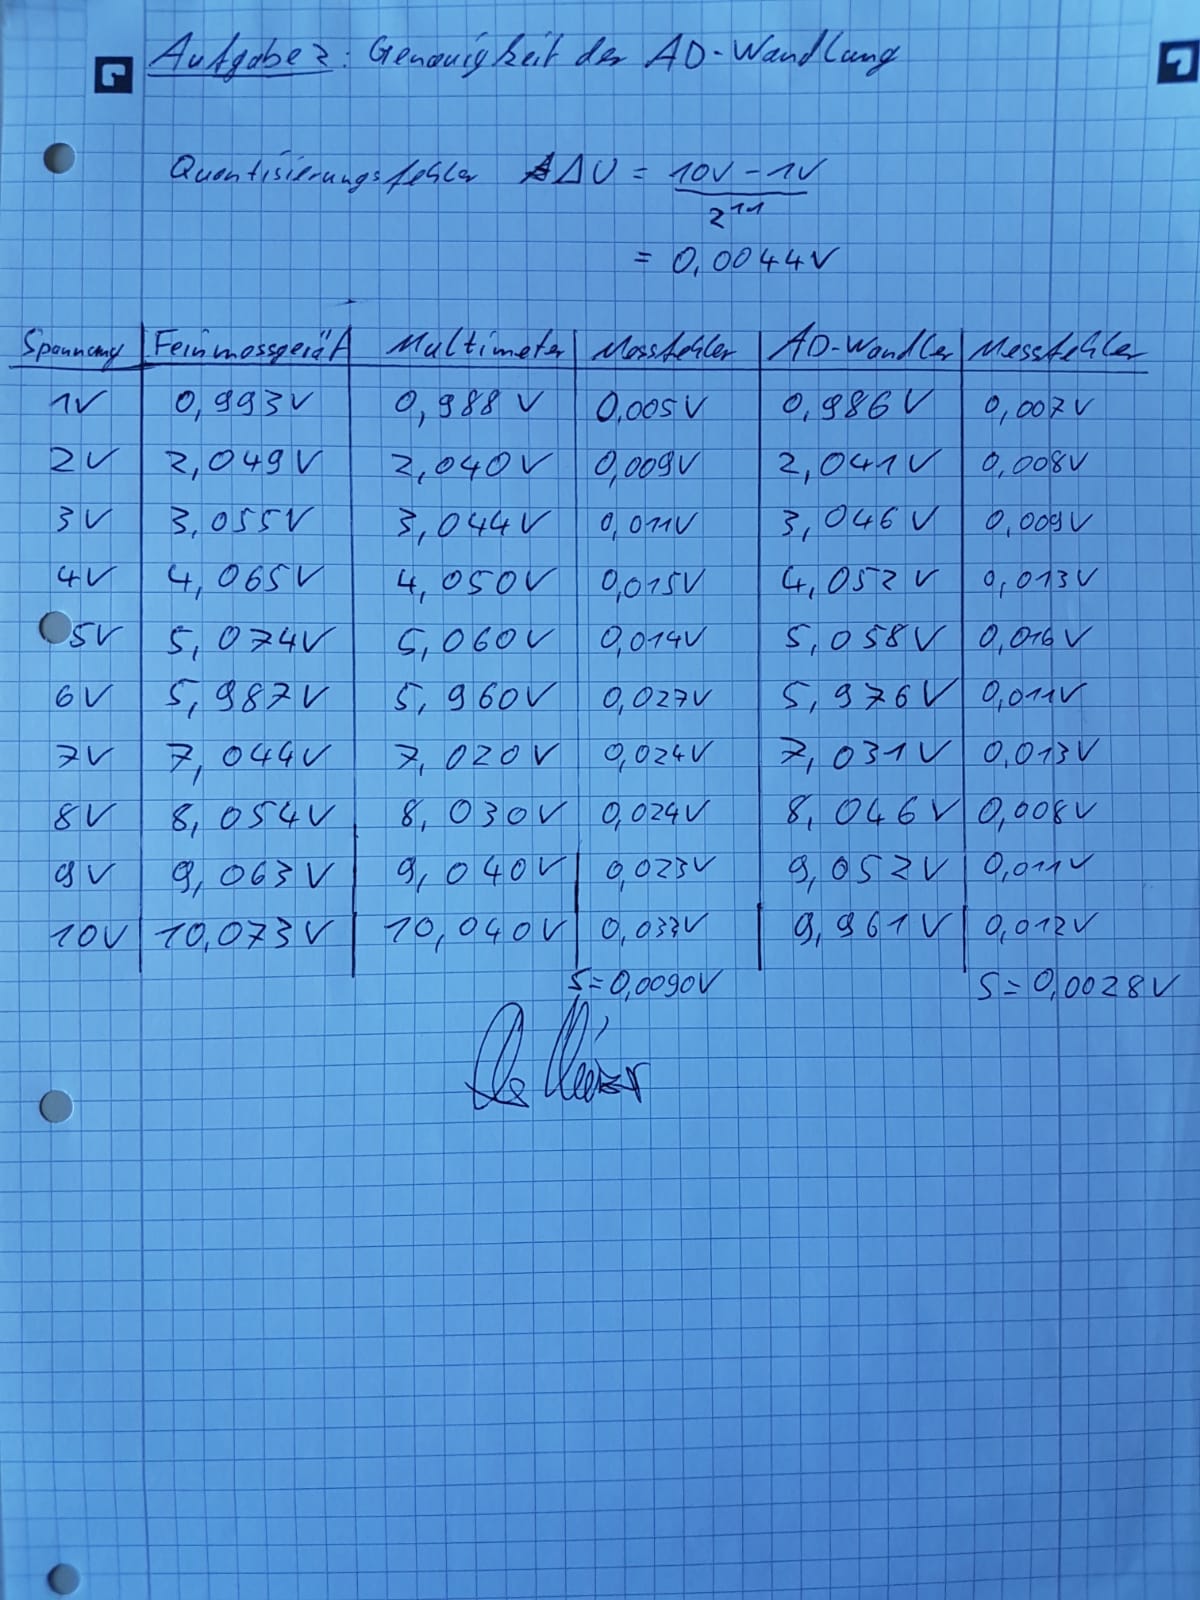 Aufgabe 2: Genauigkeit der AD-Wandlung
Quantisierungsfehler ΔU = 10V - 1V
2¹¹
= 0,0044V
Spannung Feinmessgerät Multimeter Messfehler AD-Wandler Messfehler
1V 0,993V 0,988V 0,005V 0,986V 0,007V
2V 2,049V 2,040V 0,009V 2,041V 0,008V
3V 3,055V 3,044V 0,011V 3,046V 0,009V
4V 4,065V 4,050V 0,015V 4,052V 0,013V
5V 5,074V 5,060V 0,014V 5,058V 0,016V
6V 5,987V 5,960V 0,027V 5,976V 0,011V
7V 7,044V 7,020V 0,024V 7,031V 0,013V
8V 8,054V 8,030V 0,024V 8,046V 0,008V
9V 9,063V 9,040V 0,023V 9,052V 0,011V
10V 10,073V 10,040V 0,033V 9,961V 0,012V
S=0,0090V S=0,0028V